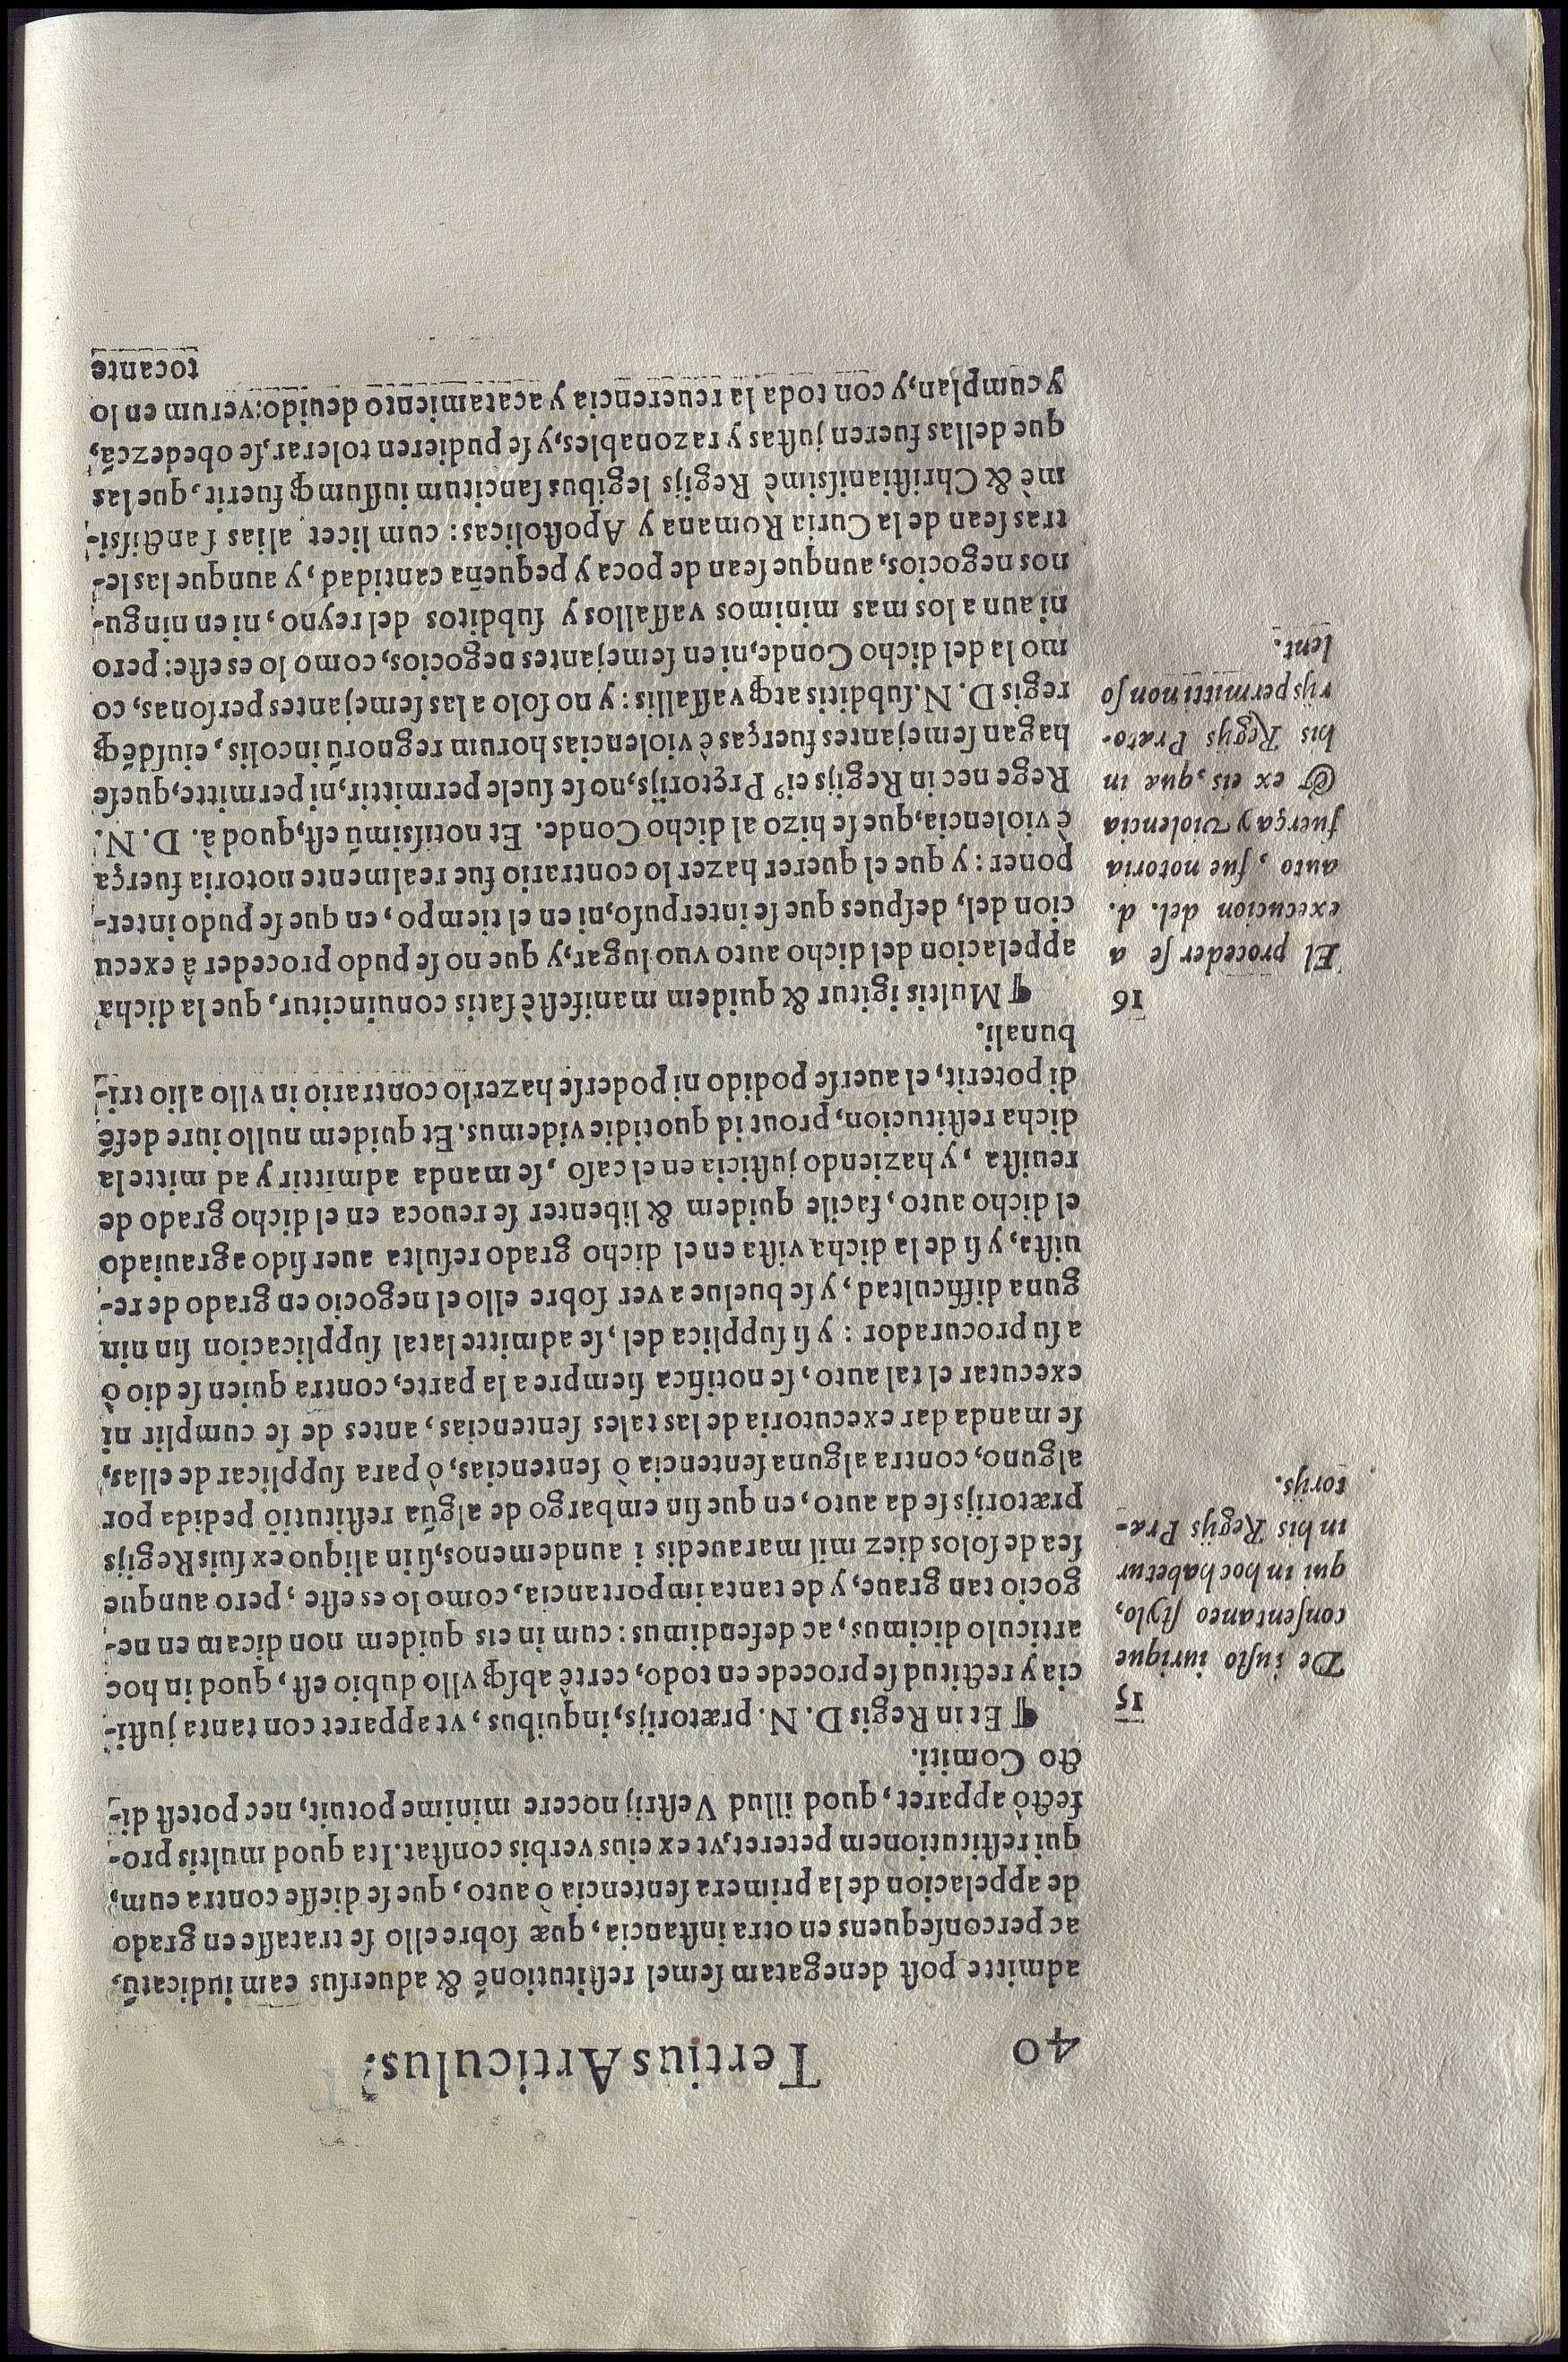 40 Tertius Articulus.
admitte post denegatam semel restitutionē & aduersus eam iudicatū,
ac per consequens en otra instancia, quæ sobre ello se tratasse en grado
de appelacion de la primera sentencia ò auto, que se diesse contra eum,
qui restitutionem peteret, vt ex eius verbis constat. Ita quod multis pro-
fectò apparet, quod illud Vestrij nocere minime potuit, nec potest di-
cto Comiti.
15
De iusto iurique
consentaneo stylo,
qui in hoc habetur
in his Regijs Præ-
torijs.
¶ Et in Regis D. N. prætorijs, in quibus, vt apparet con tanta justi-
cia y rectitud se procede en todo, certè absqꝫ vllo dubio est, quod in hoc
articulo dicimus, ac defendimus: cum in eis quidem non dicam en ne-
gocio tan graue, y de tanta importancia, como lo es este, pero aunque
sea de solos diez mil marauedis i aun de menos, si in aliquo ex suis Regijs
prætorijs se da auto, en que sin embargo de algūa restitutiō pedida por
alguno, contra alguna sentencia ò sentencias, ò para supplicar de ellas,
se manda dar executoria de las tales sentencias, antes de se cumplir ni
executar el tal auto, se notifica siempre a la parte, contra quien se dio ò
a su procurador: y si supplica del, se admitte la tal supplicacion sin nin
guna difficultad, y se buelue a ver sobre ello el negocio en grado de re-
uista, y si de la dicha vista en el dicho grado resulta auer sido agrauiado
el dicho auto, facile quidem & libenter se reuoca en el dicho grado de
reuista, y haziendo justicia en el caso, se manda admittir y ad mitte la
dicha restitucion, prout id quotidie videmus. Et quidem nullo iure defē
di poterit, el auerse podido ni poderse hazer lo contrario in vllo alio tri-
bunali.
16
El proceder se a
execucion del. d.
auto, fue notoria
fuerça y violencia
& ex eis, quæ in
his Regijs Præto-
rijs permitti non so
lent.
¶ Multis igitur & quidem manifestè satis conuincitur, que la dicha
appelacion del dicho auto vuo lugar, y que no se pudo proceder à execu
cion del, despues que se interpuso, ni en el tiempo, en que se pudo inter-
poner: y que el querer hazer lo contrario fue realmente notoria fuerça
è violencia, que se hizo al dicho Conde. Et notissimū est, quod à. D. N.
Rege nec in Regijs eiꝰ Prętorijs, no se suele permittir, ni permitte, que se
hagan semejantes fuerças è violencias horum regnorū incolis, eiusdēqꝫ
regis D. N. subditis atqꝫ vassallis: y no solo a las semejantes personas, co
mo la del dicho Conde, ni en semejantes negocios, como lo es este: pero
ni aun a los mas minimos vassallos y subditos del reyno, ni en ningu-
nos negocios, aunque sean de poca y pequeña cantidad, y aunque las le-
tras sean de la Curia Romana y Apostolicas: cum licet alias sanctissi-
mè & Christianissimè Regijs legibus sancitum iussumqꝫ fuerit, que las
que dellas fueren justas y razonables, y se pudieren tolerar, se obedezcā,
y cumplan, y con toda la reuerencia y acatamiento deuido: verum en lo
tocante